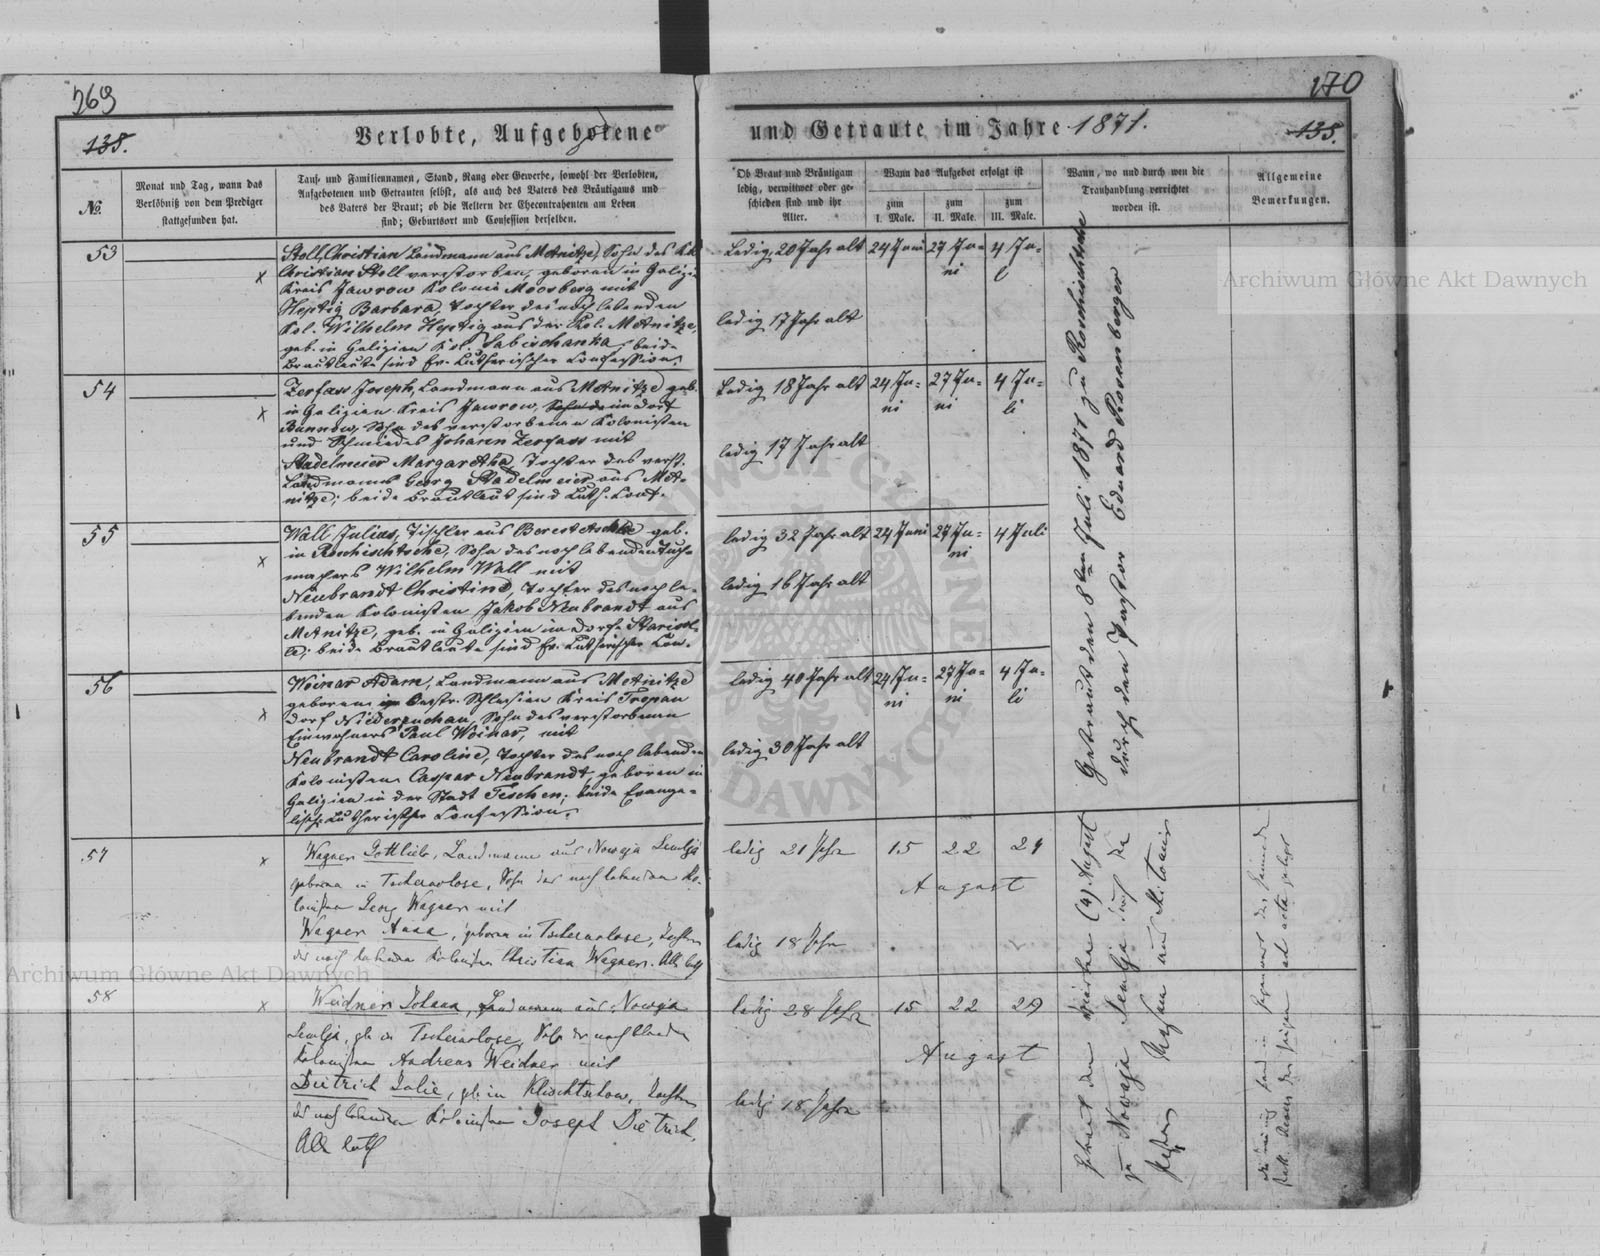 269
170
138.
Verlobte, Aufgebotene
und Getraute im Jahre 1871.
138.
No.
Monat und Tag, wann das
Verlöbniß von dem Prediger
stattgefunden hat.
Tauf- und Familiennamen, Stand, Rang oder Gewerbe, sowohl der Verlobten,
Aufgebotenen und Getrauten selbst, als auch des Vaters des Bräutigams und
des Vaters der Braut; ob die Aeltern der Ehecontrahenten am Leben
sind; Geburtsort und Confession derselben.
Ob Braut und Bräutigam
ledig, verwittwet oder ge-
schieden sind und ihr
Alter.
Wann das Aufgebot erfolgt ist
zum
I. Male.
zum
II. Male.
zum
III. Male.
Wann, wo und durch wen die
Trauhandlung verrichtet
worden ist.
Allgemeine
Bemerkungen.
53
x
Stoll, Christian Landmann aus Metnitze, Sohn des
Christian Stoll verstorben, geboren in Galizi-
Kreis Jaworow Kolonie Moosberg mit
Heptig Barbara, Tochter des noch lebenden
Kol. Wilhelm Heptig aus der Kol. Metnitze,
geb. in Galizien Kol. Sabischanka, beide
Brautleute sind Ev. Lutherischer Confession.
Ledig, 20 Jahr alt
24 Juni
27 Ju-
ni
4 Ju-
ledig 17 Jahr alt
54
x
Zerfass Joseph, Landmann aus Metnitze geb.
in Galizien Kreis Jaworow, im Dorf
Bunnow, Sohn des verstorbenen Kolonisten
und Schmiedes Johann Zerfass mit
Stadelmeier Margaretha, Tochter des verst.
Landmanns Georg Stadelmeier aus Met-
nitze; beide Brautleut sind Luth. Conf.
Ledig 18 Jahr alt
24 Ju-
ni
27 Ju-
ni
4 Ju-
li
ledig 17 Jahr alt
55
x
Wall Julius, Tischler aus geb.
in Roschischtsche, Sohn des noch lebenden Tuch-
machers Wilhelm Wall mit
Neubrandt Christine, Tochter des noch le-
benden Kolonisten Jakob Neubrandt aus
Metnitze, geb. in Galizien im Dorfe
beide Brautleute sind Ev. Lutherischer Con.
ledig 32 Jahr alt
24 Juni
27 Ju-
ni
4 Juli
ledig 16 Jahr alt
56
x
Woinar Adam, Landmann aus Metnitze
geboren in Oestr. Schlesien Kreis Troppau
Dorf Sohn des verstorbenen
Einwohners Paul Woinar, mit
Neubrandt Caroline, Tochter des noch lebenden
Kolonisten Caspar Neubrandt, geboren in
Galizien in der Stadt Teschen; beide Evange-
lisch Lutherischer Confession.
ledig 40 Jahr alt
24 Ju-
ni
27 Ju-
ni
4 Ju-
li
ledig 30 Jahr alt
Getraut den 8ten Juli 1871 zu Roschischtsche
durch den Pastor Eduard Rosenberger
57
x
Wagner Gottlieb, Landmann aus Nowaja Semlja
geboren in Tscharnolose, Sohn des noch lebenden Ko-
lonisten Georg Wagner mit
Wagner Anna, geboren in Tscharnolose, Tochter
des noch lebenden Kolonisten Christian Wagner. Alle luth
ledig 21 Jahr
15 22 29
August
ledig 18 Jahr
58
x
Weidner Johann, Landmann aus Nowaja
Semlja, geb. in Tscharnolose, Sohn des noch lebenden
Kolonisten Andreas Weidner mit
Dietrich Julie, geb. in Tochter
des noch lebenden Kolonisten Joseph Dietrich,
Alle luth
ledig 28 Jahr
15 22 29
August
ledig 18 Jahr
den vierten (4) August
zu Nowaja Semlja durch
Pastor aus Shitomir
Archiwum Główne Akt Dawnych
Archiwum Główne Akt Dawnych
ARCHIWUM GŁÓWNE
AKT DAWNYCH